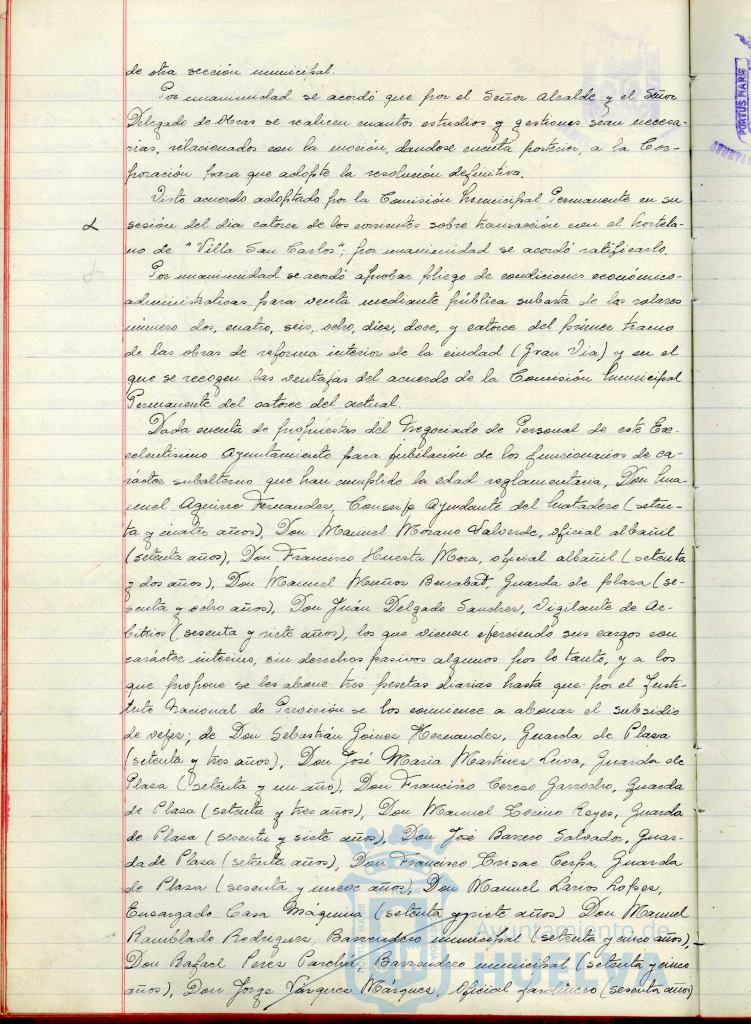 de otra sección municipal.
Por unanimidad se acordó que por el Señor Alcalde y el Señor
Delegado de Obras se realicen cuantos estudios y gestiones sean necesa-
rias, relacionados con la moción, dandose cuenta posterior, a la Cor-
poración para que adopte la resolución definitiva.
Visto acuerdo adoptado por la Comisión Municipal Permanente en su
sesión del dia catorce de los corrientes sobre transacción con el hortela-
no de "Villa San Carlos"; por unanimidad se acordó ratificarlo.
Por unanimidad se acordó aprobar pliego de condiciones económico-
administrativas para venta mediante pública subasta de los solares
número dos, cuatro, seis, ocho, diez, doce, y catorce del primer tramo
de las obras de reforma interior de la ciudad (Gran Via) y en el
que se recogen las ventajas del acuerdo de la Comisión Municipal
Permanente del catorce del actual.
Dada cuenta de propuestas del Negociado de Personal de este Ex-
celentisimo Ayuntamiento para jubilación de los funcionarios de ca-
rácter subalterno que han cumplido la edad reglamentaria, Don Ma-
nuel Aguirre Fernandez, Conserje Ayudante del Matadero (seten-
ta y cuatro años), Don Manuel Morano Valverde, oficial albañil
(setenta años), Don Francisco Huerta Mora, oficial albañil (setenta
y dos años), Don Manuel Muñoz Benabat, Guarda de plaza (se-
senta y ocho años), Don Juán Delgado Sanchez, Vigilante de Ar-
bitrios (sesenta y siete años), los que vienen ejerciendo sus cargos con
carácter interino, sin derechos pasivos algunos por lo tanto, y a los
que propone se les abone tres pesetas diarias hasta que por el Insti-
tuto Nacional de Previsión se los comience a abonar el subsidio
de vejez; de Don Sebastián Hernandez, Guarda de Plaza
(setenta y tres años), Don José Maria Martinez Leiva, Guarda de
Plaza (setenta y un año), Don Francisco Cerezo Garrocho, Guarda
de Plaza (setenta y tres años), Don Manuel Cocino Reyes, Guarda
de Plaza (sesenta y siete años), Don José Barseco Salvador, Guar-
da de Plaza (setenta años), Don Francisco Cerpa, Guarda
de Plaza (sesenta y nueve años), Don Manuel Larios Lopez,
Encargado Casa Máquina (setenta y siete años) Don Manuel
Ramblado Rodriguez, Barrendero municipal (setenta y cinco años)
Don Rafael Perez, Barrendero municipal (setenta y cinco
años), Don Jorge Vázquez Márquez, Oficial Jardinero (sesenta años)
PORTUS MARIS
Ayuntamiento de
HUELVA